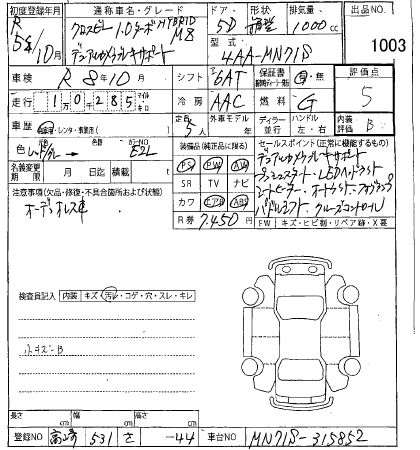 初度登録年月 通称車名・グレード ドア 形状 排気量 出品NO
R 5年/10月 クロスビー 1.0ターボ HYBRID MX 5D 1000cc 1003
デュアルカメラブレーキサポート 型式 4AA-MN71S
車検 R 8年10月 シフト 6AT 保証書 有・無 評価点 5
走行 10285 マイル Km 冷房 AAC 燃料 G
車歴 自家用・レンタ・事業用( ) 定員 5人 外車モデル ディーラー 並行 ハンドル 左・右 内装評価 B
色 色替 カラーNO E2L 装備品(純正品に限る) セールスポイント(正常に機能するもの)
名義変更期限 月 日迄 積載 PS PW AW デュアルカメラブレーキサポート
注意事項(欠品・修復・不具合箇所および状態) SR TV ナビ プッシュスタート・LEDヘッドライト
オーディオレス車 カワ エアB ABS シートヒーター
R券 7,450円 パドルシフト クルーズコントロール
FW キズ・ヒビ割・リペア跡・X甚
検査員記入 内装 キズ・汚レ・コゲ・穴・スレ・キレ
小キズB
長さ cm 幅 cm 高さ cm
登録NO 高崎 531 さ -44 車台NO MN71S-315852